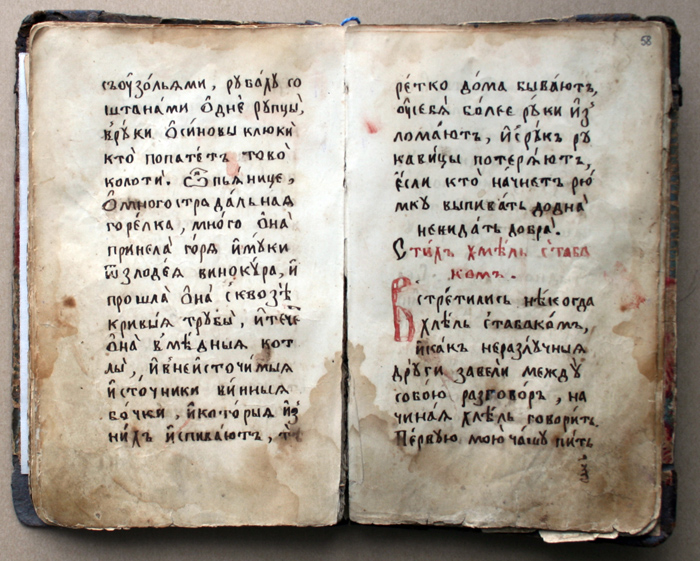 съоу҆зо́льями, руба́ху со
штана́ми ѻ҆днѐ рупцы̀,
вру́ки ѻ҆си́новы клюкѝ
кто̀ попаде́тъ тово̀
колоти̑. Ѽ пья́нице,
ѻ҆многострада́льная
горе́лка, мно́го ѻ҆на̀
принесла̀ го́ря и҆му́ки
ѿзлоде́я виноку́ра, и҆
прошла̀ ѻ҆на̀ сквозѣ̀
кривы́я трꙋбы̀, и҆тече̑
ѻ҆на̀ вмѣ́дныя кот
лы̀, и҆внеи҆сточи́мыя
и҆сто́чники ви́нныя
бо́чки, и҆кото́рыя и҆з̾
ни́хъ и҆спива́ютъ, тѣ̀
58
ре́тко до́ма быва́ютъ,
оу҆себя̀ бо́лее ру́ки и҆з̾
лома́ютъ, и҆сру́къ ру
кави́цы потеря́ютъ,
є҆́сли кто̀ на́чнетъ рю́
мку выпива́ть додна̀
невида́ть добра̀.
Сти́хъ хмѣ́ль стаба
ко́мъ.
Встре́тились нѣ́когда
хмѣ́ль стабако́мъ,
и҆ка́къ неразлу́чныя
дру́ги завели̑ между̀
собо́ю разгово́ръ, на
чина́я хмѣ́ль говори́ть.
Пе́рвую мою̀ ча́шу пи́ть